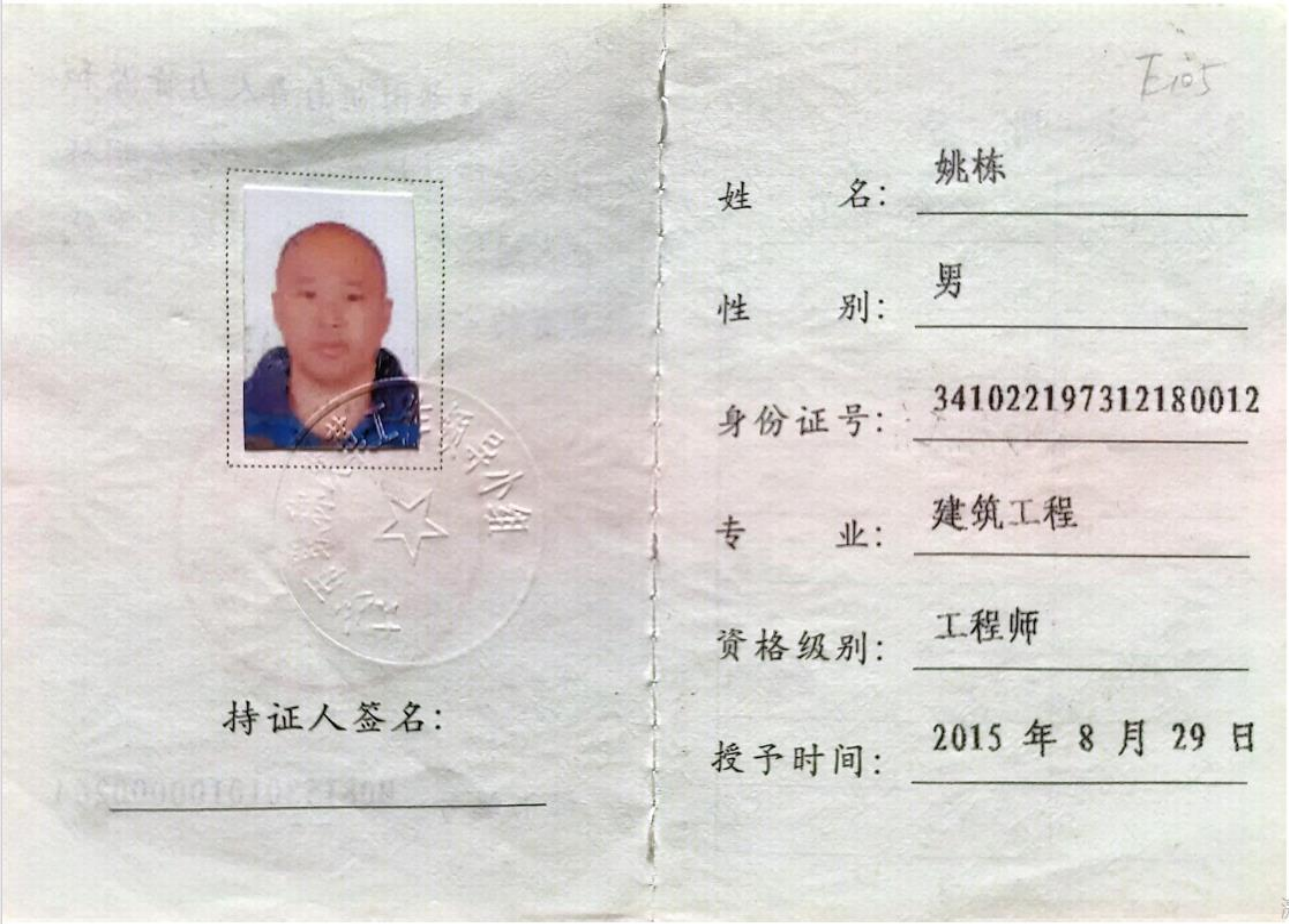 持证人签名：
E105
姓 名： 姚栋
性 别： 男
身份证号： 341022197312180012
专 业： 建筑工程
资格级别： 工程师
授予时间： 2015 年 8 月 29 日